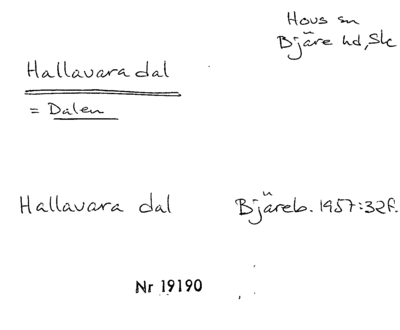 Hovs sn
Bjäre hd, Sk
Hallavara dal
= Dalen
Hallavara dal Bjäreb. 1957:32f.
Nr 19190